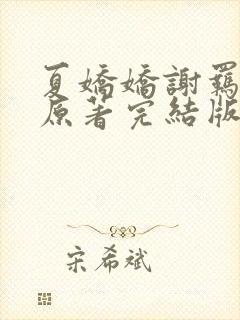 夏嬌嬌謝羈
原著完結版
宋希斌